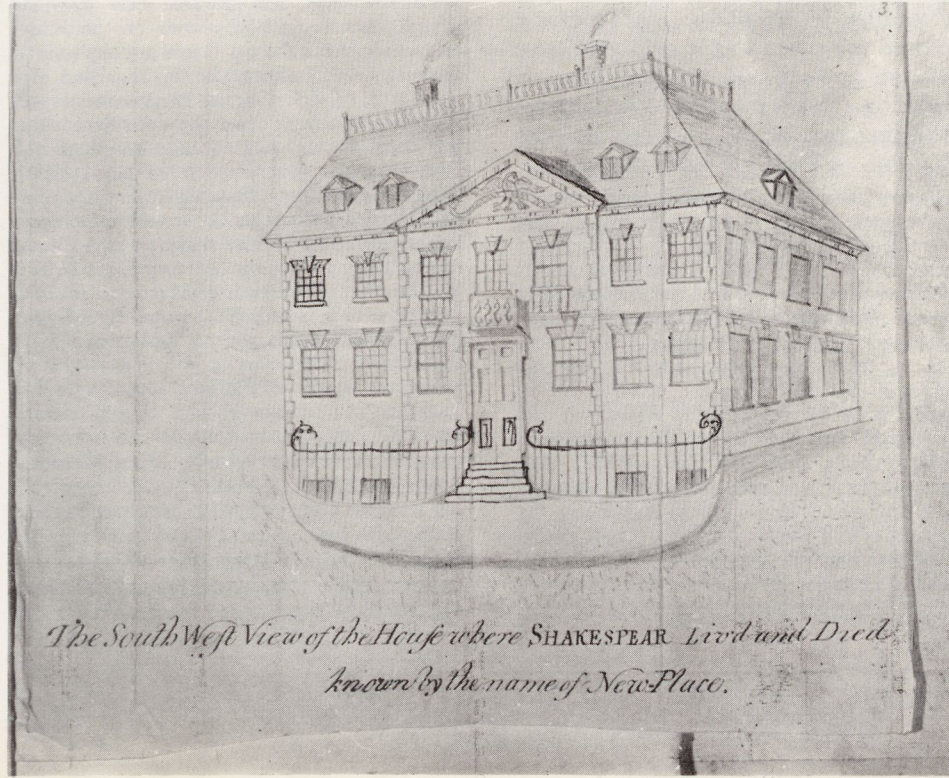 3.
The South Weſt View of the Houſe where SHAKESPEAR Liv'd and Died
known by the name of New-Place.